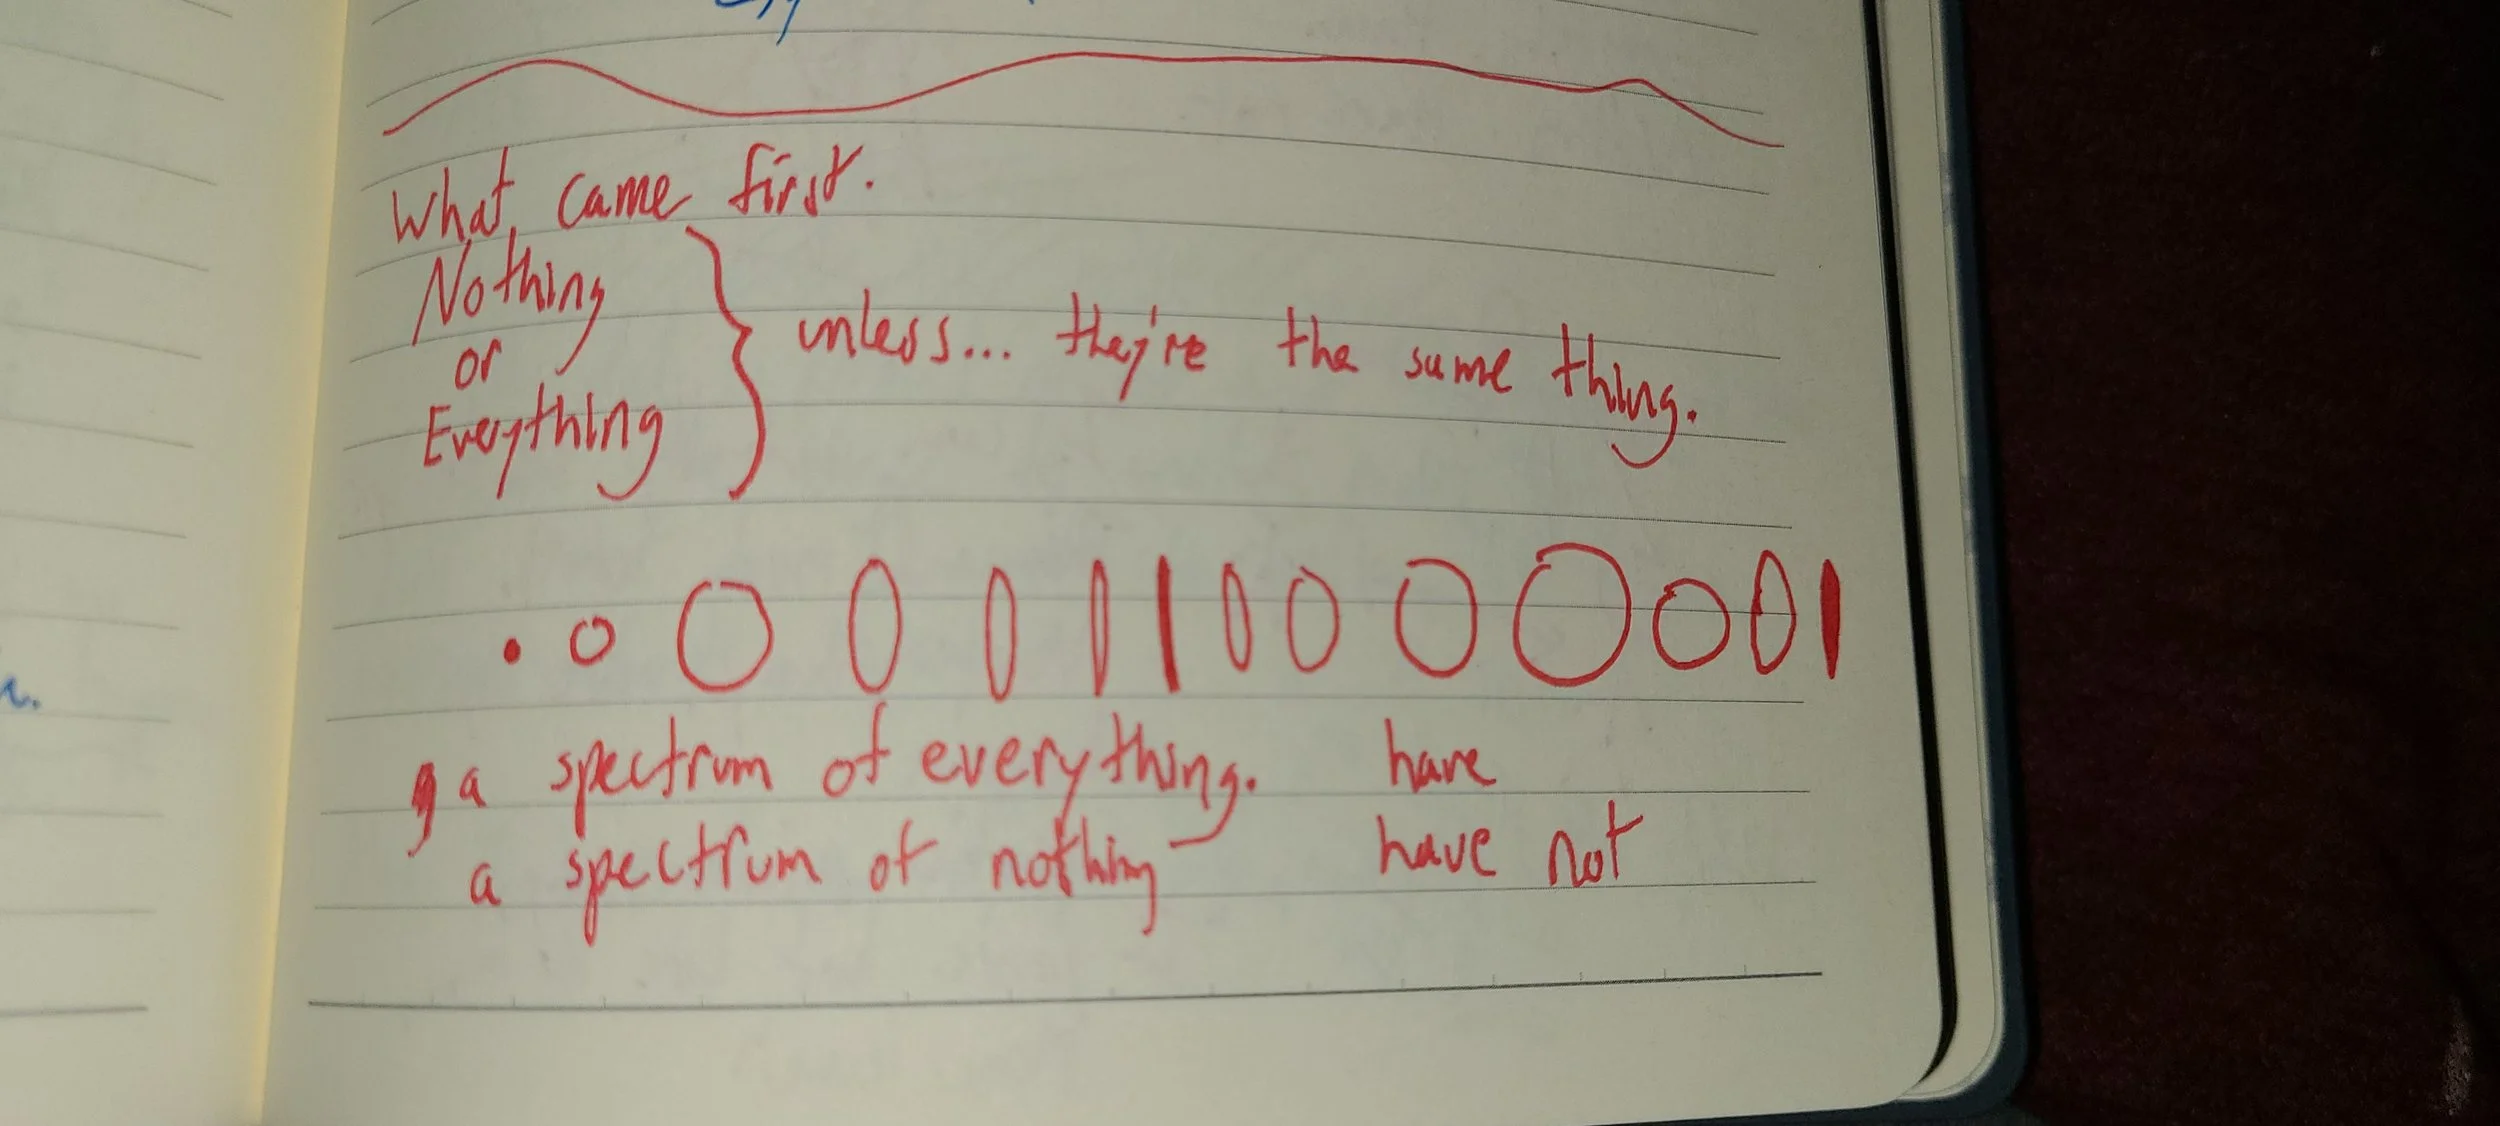 What came first.
Nothing
or
Everything
unless... they're the same thing.
a spectrum of everything. have
a spectrum of nothing have not